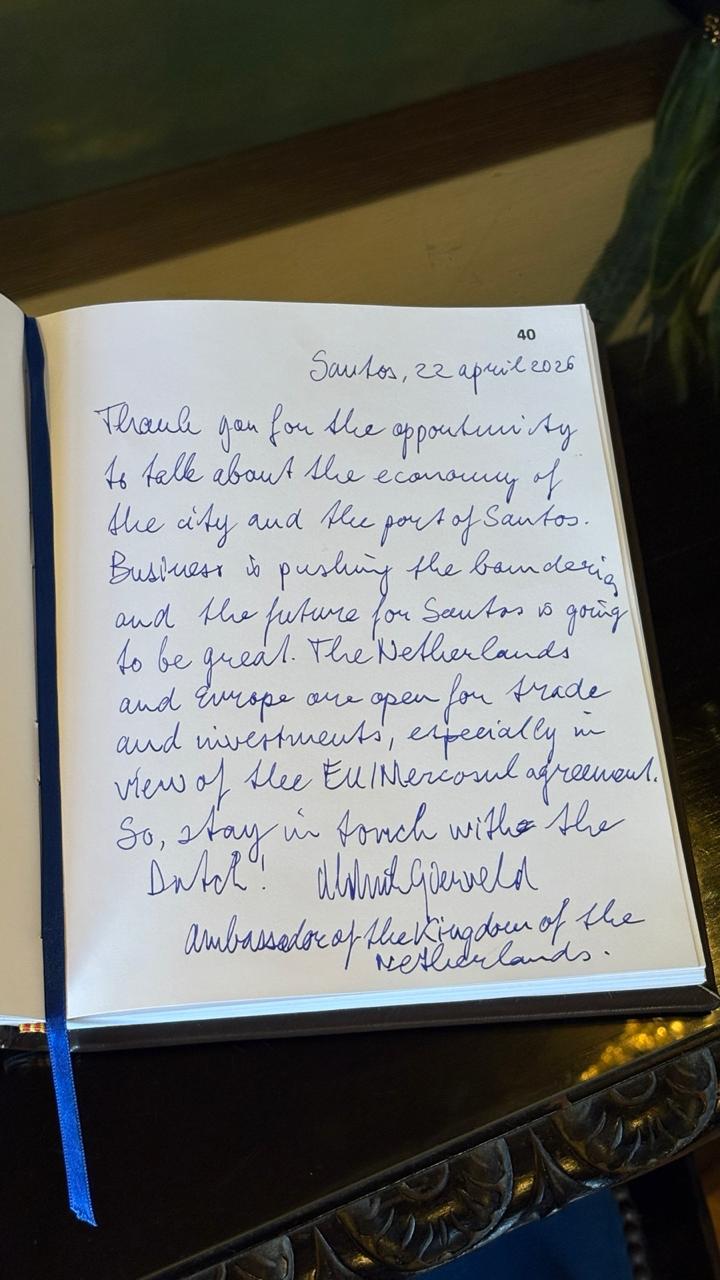 40
Santos, 22 april 2026
Thank you for the opportunity
to talk about the economy of
the city and the port of Santos.
Business is pushing the
and the future for Santos is going
to be great. The Netherlands
and Europe are open for trade
and investments, especially in
view of the EU/Mercosul agreement.
So, stay in touch with the
Dutch!
Ambassador of the Kingdom of the
Netherlands.